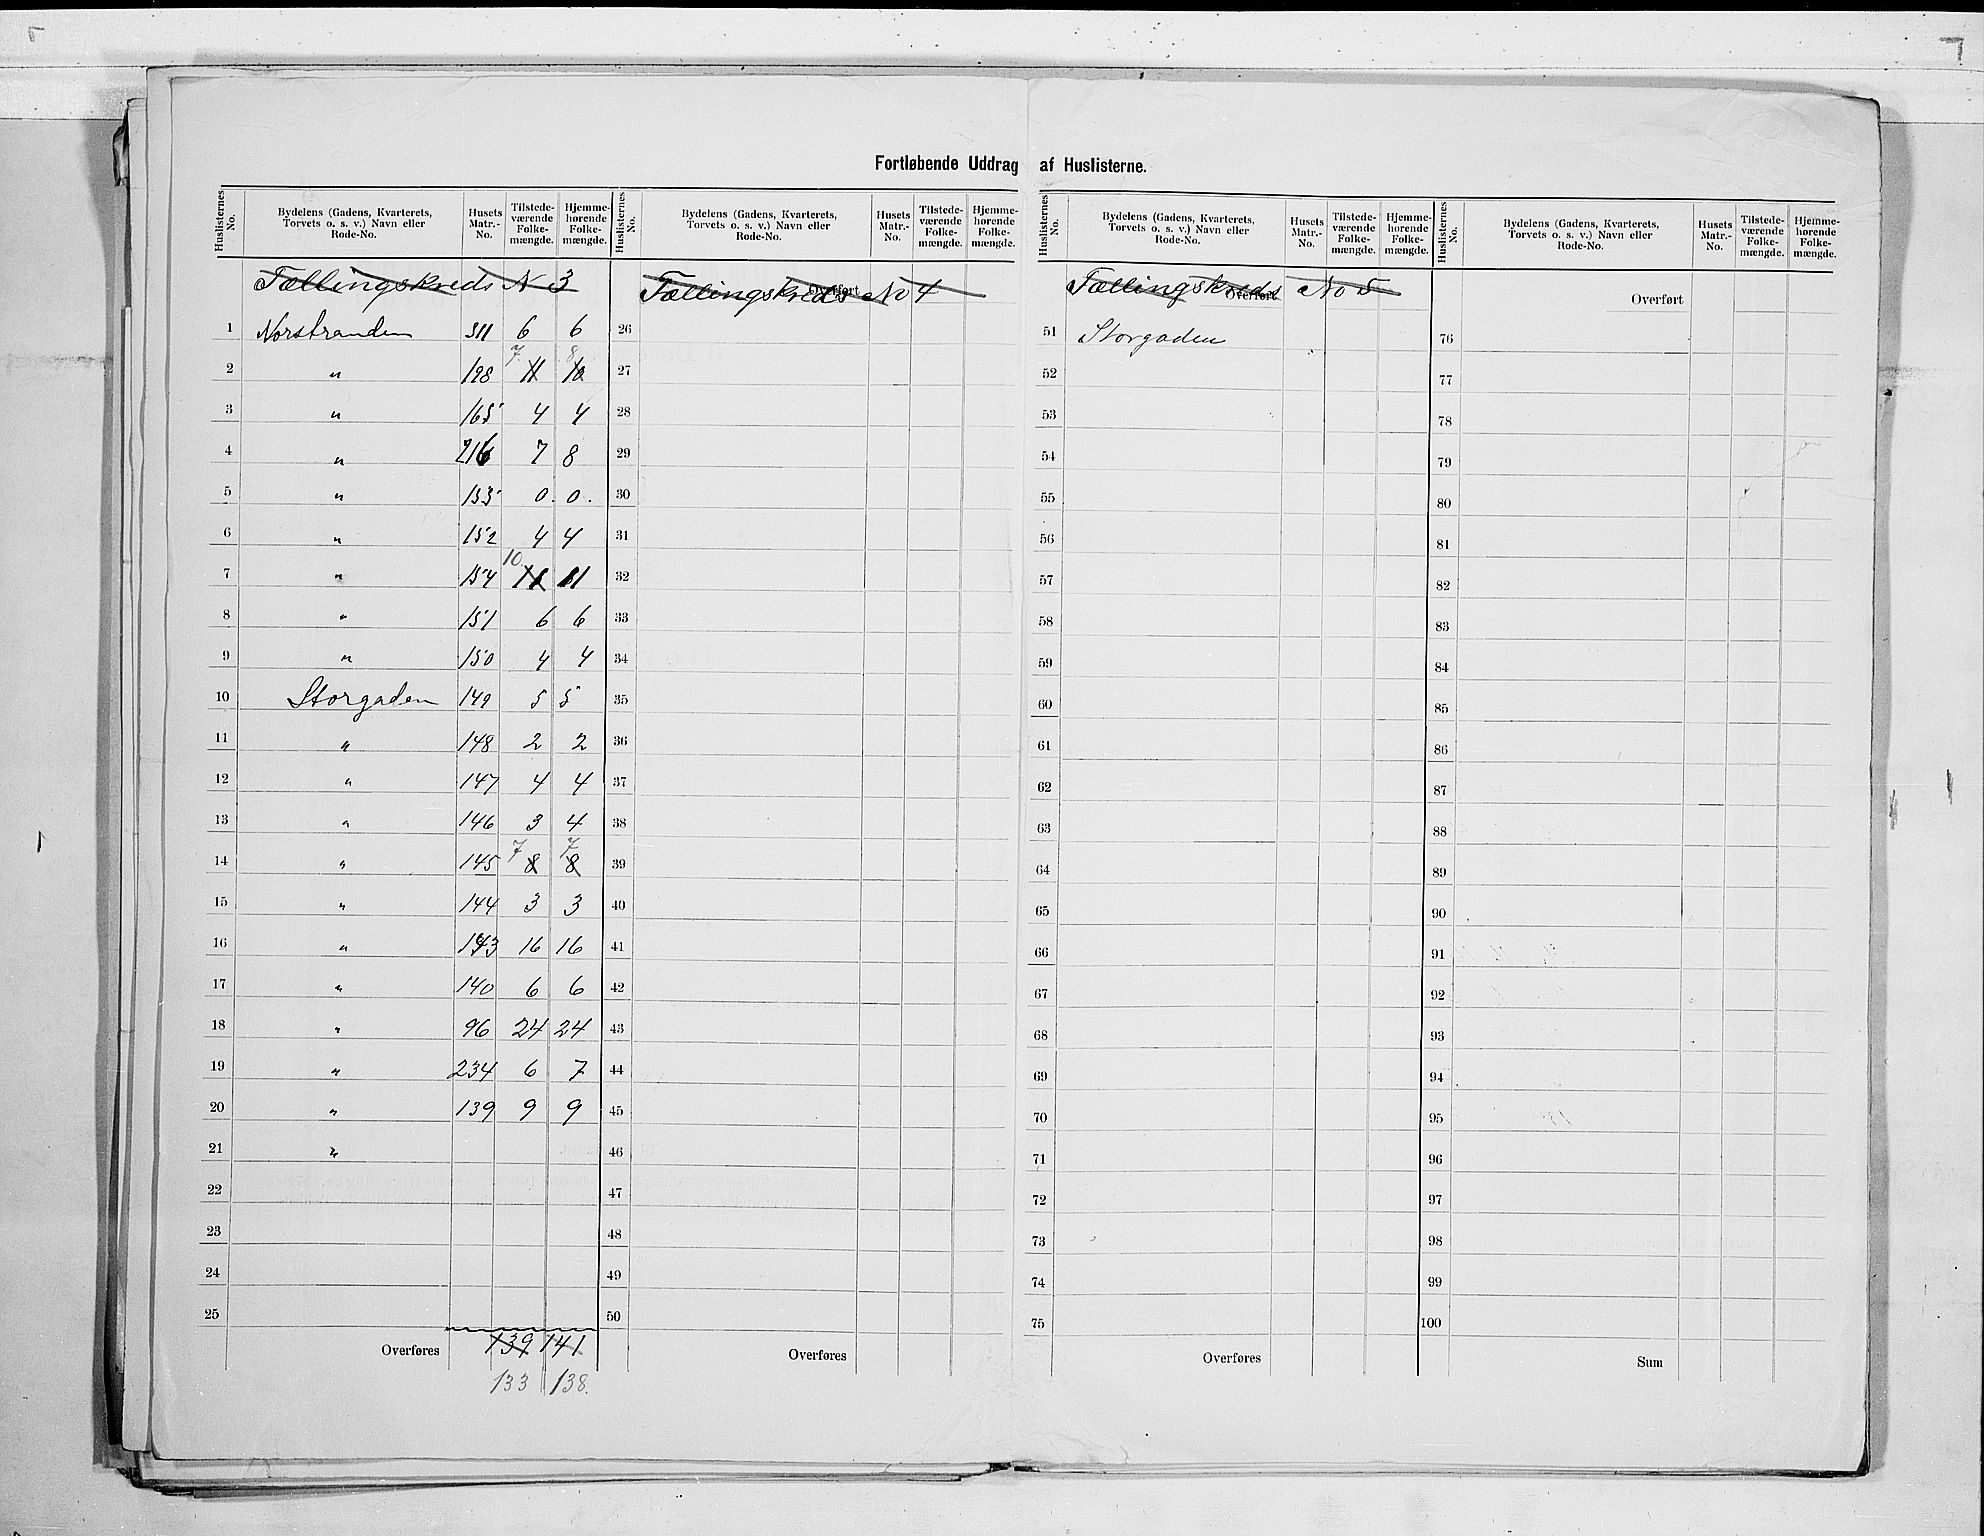 Fortløbende Uddrag af Huslisterne.
Huslisternes No. | Bydelens (Gadens, Kvarterets, Torvets o. s. v.) Navn eller Rode-No. | Husets Matr.-No. | Tilstedeværende Folkemængde. | Hjemmehørende Folkemængde.
Tællingskreds N 3
1 Norstranden 311 6 6
2 " 198 7 11 8 10
3 " 165 4 4
4 " 216 7 8
5 " 153 0. 0.
6 " 152 4 4
7 " 154 10 11 11
8 " 151 6 6
9 " 150 4 4
10 Storgaden 149 5 5
11 " 148 2 2
12 " 147 4 4
13 " 146 3 4
14 " 145 7 8 7 8
15 " 144 3 3
16 " 143 16 16
17 " 140 6 6
18 " 96 24 24
19 " 234 6 7
20 " 139 9 9
21 "
22
23
24
25
Overføres 139 141
133 138.
Huslisternes No. | Bydelens (Gadens, Kvarterets, Torvets o. s. v.) Navn eller Rode-No. | Husets Matr.-No. | Tilstedeværende Folkemængde. | Hjemmehørende Folkemængde.
Overført
Tællingskreds No 4
26
27
28
29
30
31
32
33
34
35
36
37
38
39
40
41
42
43
44
45
46
47
48
49
50
Overføres
Huslisternes No. | Bydelens (Gadens, Kvarterets, Torvets o. s. v.) Navn eller Rode-No. | Husets Matr.-No. | Tilstedeværende Folkemængde. | Hjemmehørende Folkemængde.
Overført
Tællingskreds No 5
51 Storgaden
52
53
54
55
56
57
58
59
60
61
62
63
64
65
66
67
68
69
70
71
72
73
74
75
Overføres
Huslisternes No. | Bydelens (Gadens, Kvarterets, Torvets o. s. v.) Navn eller Rode-No. | Husets Matr.-No. | Tilstedeværende Folkemængde. | Hjemmehørende Folkemængde.
Overført
76
77
78
79
80
81
82
83
84
85
86
87
88
89
90
91
92
93
94
95
96
97
98
99
100
Sum